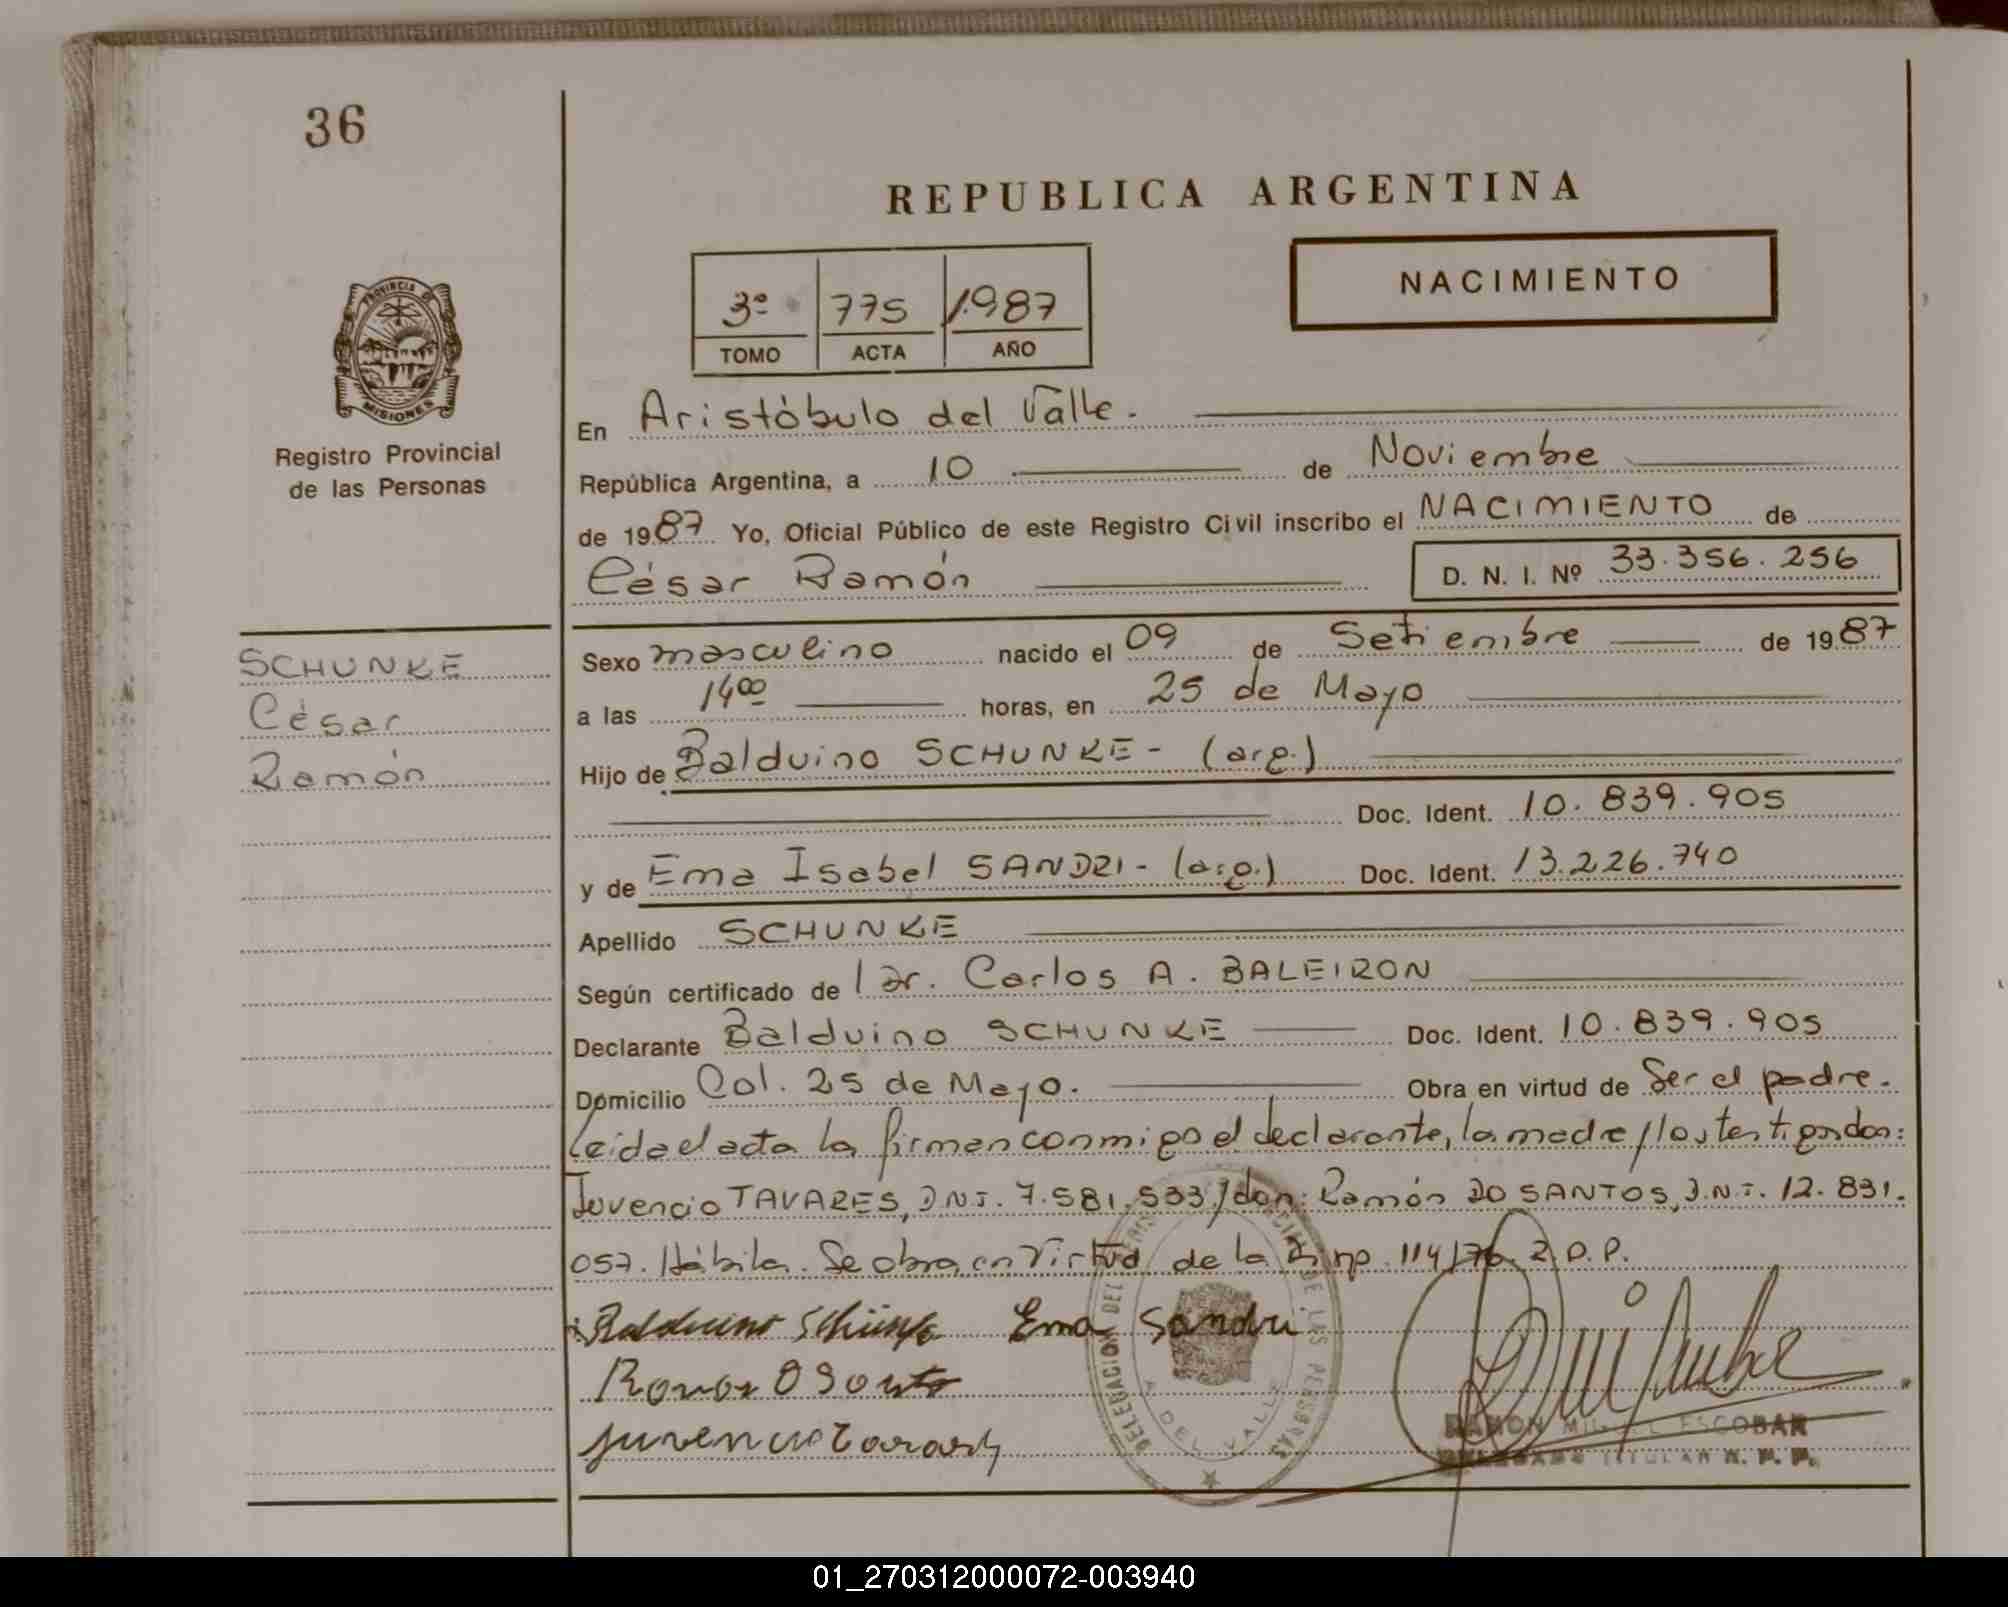 36
REPUBLICA ARGENTINA
NACIMIENTO
3º 775 1.987
TOMO ACTA AÑO
PROVINCIA DE
MISIONES
Registro Provincial
de las Personas
En Aristóbulo del Valle.
República Argentina, a 10 de Noviembre
de 1987 Yo, Oficial Público de este Registro Civil inscribo el NACIMIENTO de
César Ramón D. N. I. Nº 33.356.256
SCHUNKE
César
Ramón
Sexo masculino nacido el 09 de Setiembre de 1987
a las 14⁰⁰ horas, en 25 de Mayo
Hijo de Balduino SCHUNKE - (arg.)
Doc. Ident. 10.839.905
y de Ema Isabel SANDRI - (arg.) Doc. Ident. 13.226.740
Apellido SCHUNKE
Según certificado de l Dr. Carlos A. BALEIRON
Declarante Balduino SCHUNKE Doc. Ident. 10.839.905
Domicilio Col. 25 de Mayo. Obra en virtud de Ser el padre.
Leida el acta la firman conmigo el declarante, la madre y los testigos don:
Juvencio TAVARES, D.N.I. 7.581.533 y don: Ramón DO SANTOS, D.N.I. 12.831.
057. Hábiles. Se obra en Virtud de la 114/76 R.P.P.
Balduino Schünke Ema Sandri
DELEGACION DEL DE LAS PERSONAS
A. DEL VALLE
Juvencio Tavares
RAMON MIGUEL ESCOBAR
DELEGADO TITULAR R. P. P.
01_270312000072-003940